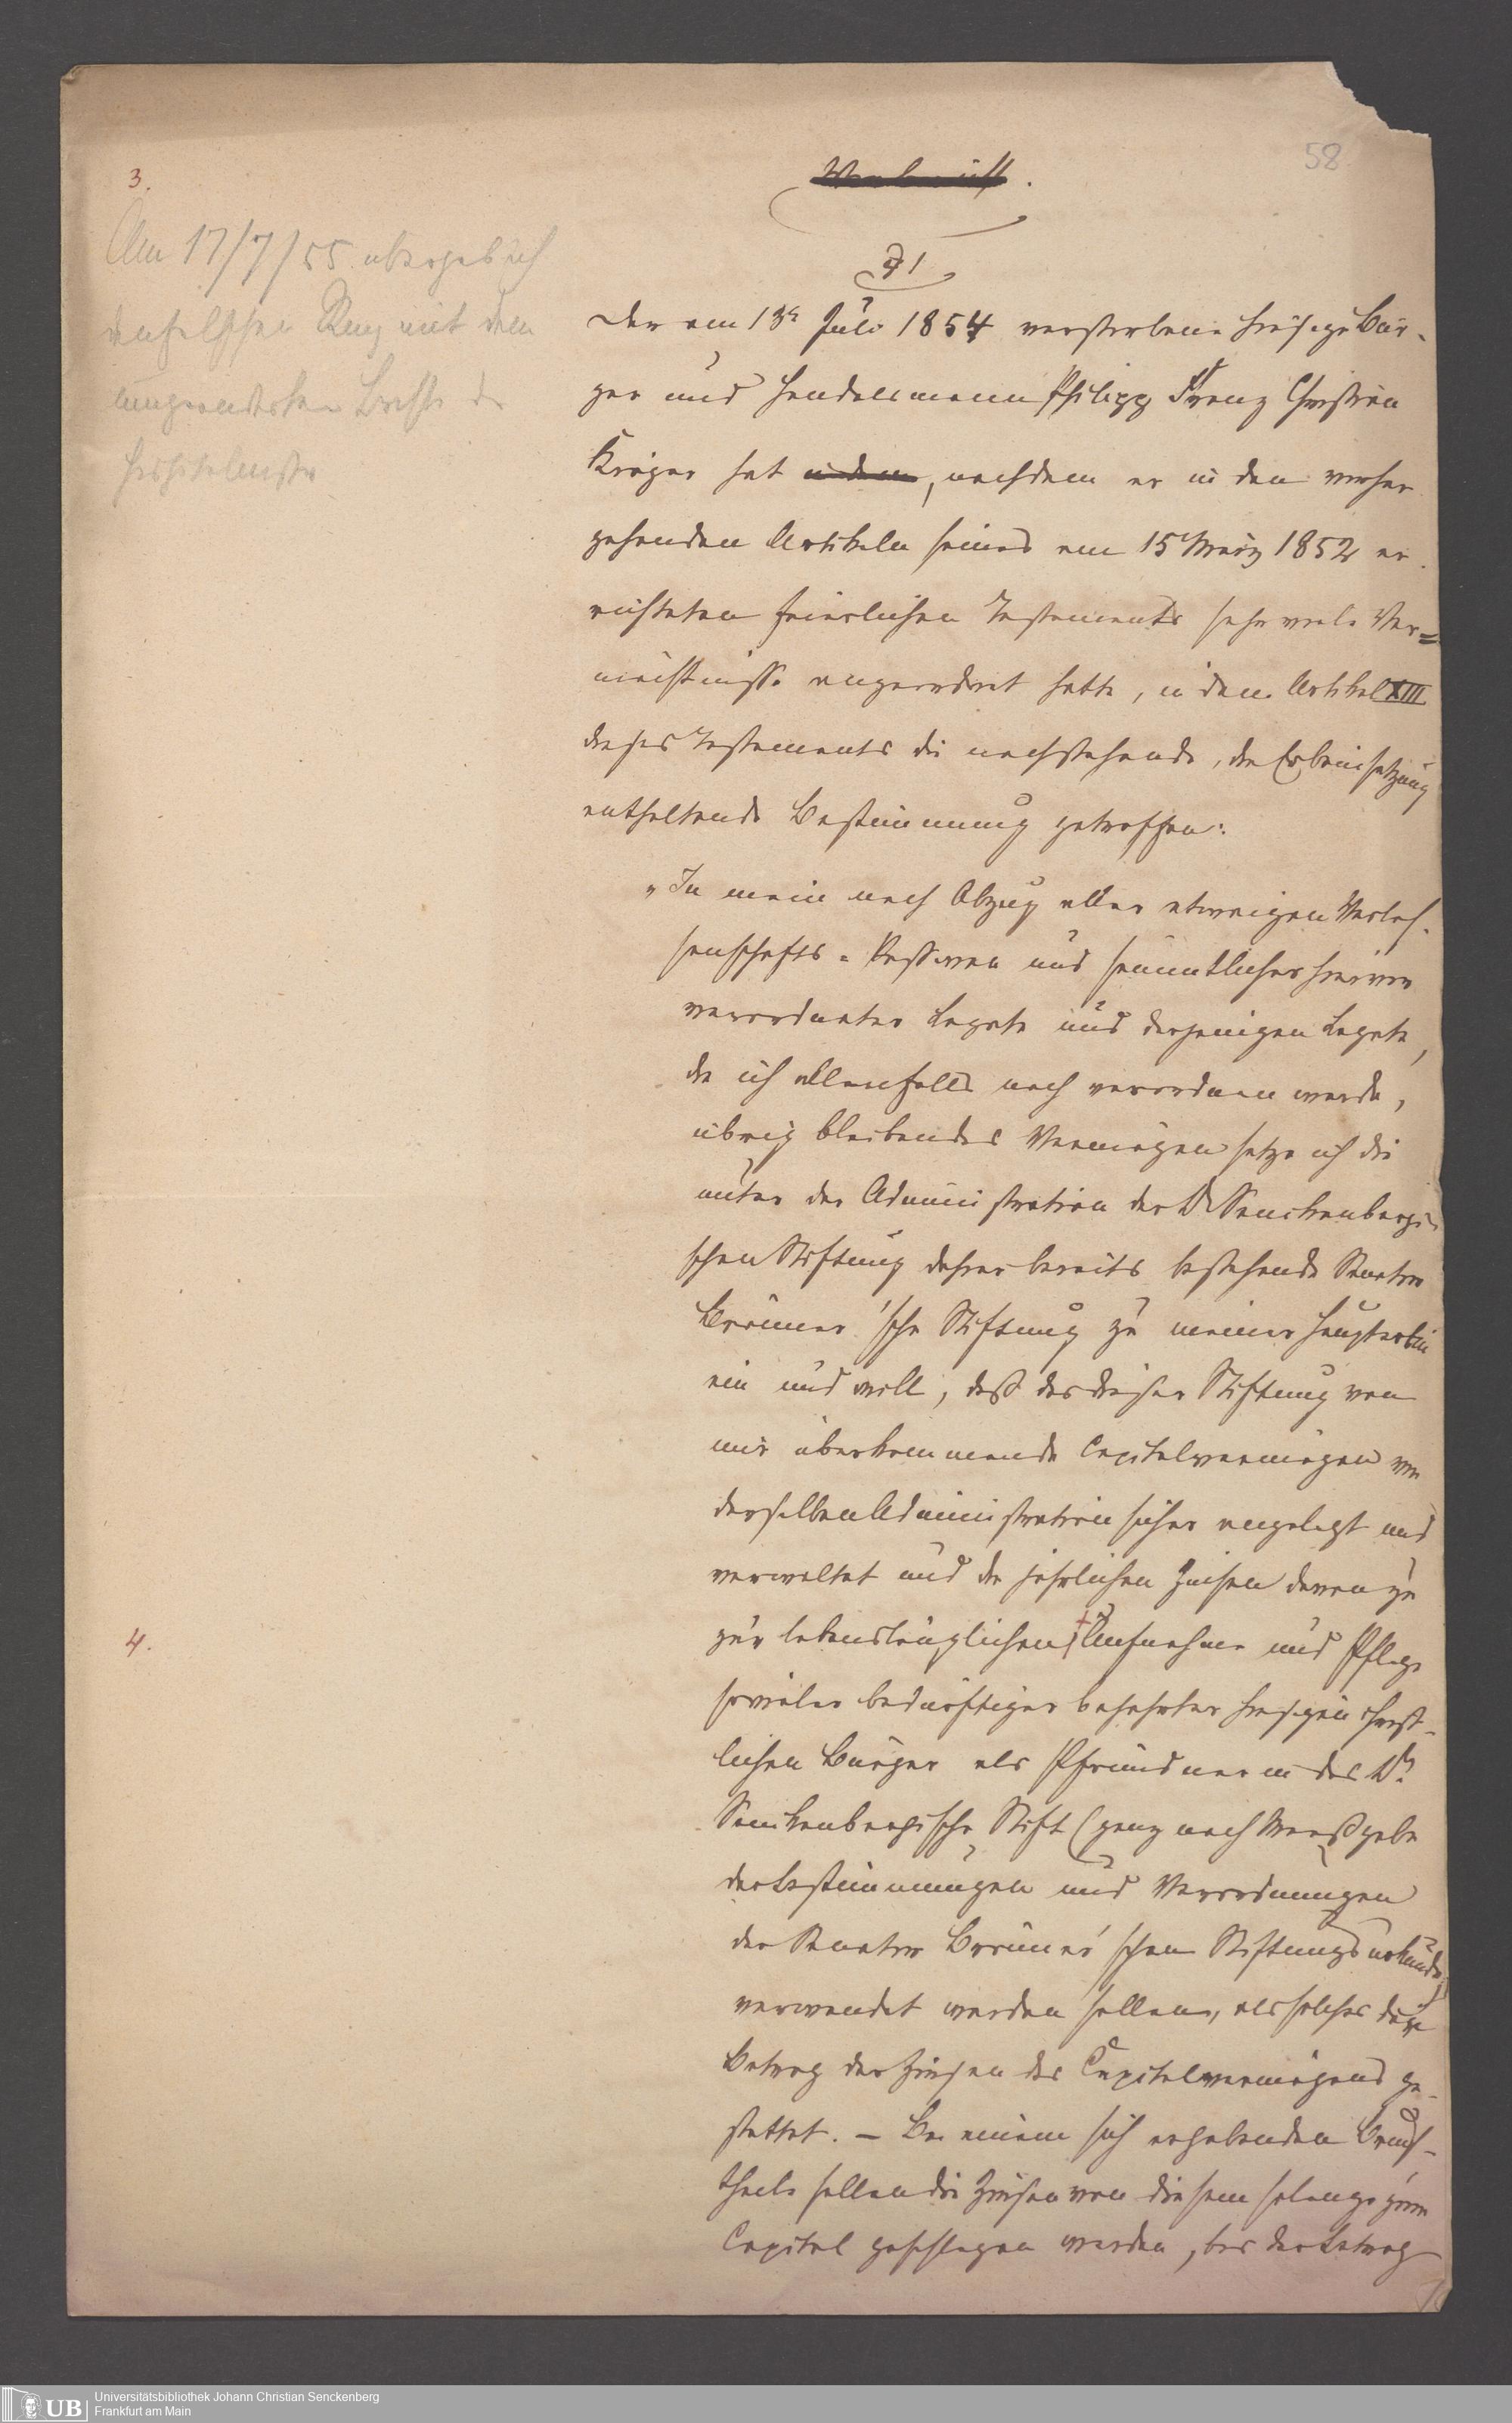 58
3.
Am 17/7/55 übergab ich
mit dem
§ 1
Der am 13n Juli 1854 verstorbene hiesige Bür-
ger und Handelsmann Philipp Franz Christian
Krüger hat , nachdem er in den vorher
gehenden Artikeln seines am 15 März 1852 er-
richteten feierlichen Testaments sehr viele Ver=
mächtnisse angeordnet hatte, in dem Artikel XIII
dieses Testaments die nachstehende, die Erbeinsetzung
enthaltende Bestimmung getroffen:
„In mein nach Abzug aller etwaigen Verlas-
senschafts-Passiven und sämmtlicher hiervor
verordneter Legate und derjenigen Legate,
die ich allenfalls noch verordnen werde,
übrig bleibendes Vermögen setze ich die
unter der Administration der Dr Senckenbergi-
schen Stiftung dahier bereits bestehende Senator
Brönner'sche Stiftung zu meiner Haupterbin
ein und will, daß das dieser Stiftung von
mir überkommende Capitalvermögen von
derselben Administration sicher angelegt und
verwaltet und die jährlichen Zinsen davon zu
4.
zur lebenslänglichen Aufnahme und Pflege
sovieler bedürftiger bejahrter hiesigen christ-
lichen Bürger als Pfründner in das Dr
Senckenbergische Stift (ganz nach Maaßgabe
der Bestimmungen und Verordnungen
der Senator Brönner'schen Stiftungsurkunde)
verwendet werden sollen, als solches der
Betrag der Zinsen des Capitalvermögens ge-
stattet. – Bei einem sich ergebenden Bruch-
theile sollen die Zinsen von diesem solange zum
Capital geschlagen werden, bis der Betrag
UB
Universitätsbibliothek Johann Christian Senckenberg
Frankfurt am Main